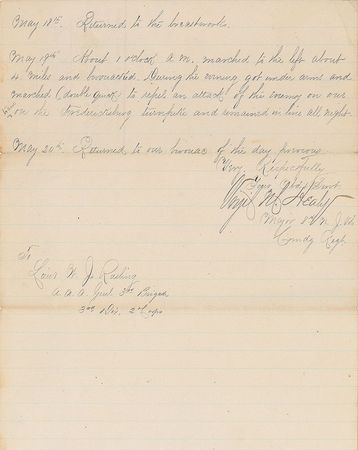 May 18th. Returned to the breastworks.
May 19th About 1 o'clock a.m. marched to the left about
4 miles and bivouacked. During the evening got under arms and
marched (double quick) to repel an attack of the enemy on our
on the Fredericksburg turnpike and remained in line all night.
May 20th. Returned to our bivouac of the day previous
Very Respectfully
Your Obdt Servt
Virgil M. Healy
Major 8th N. J. Vols
Comdg Regt
To
W. J.
A. A. A. Genl 3rd Brigade
3rd Div. 2nd Corps